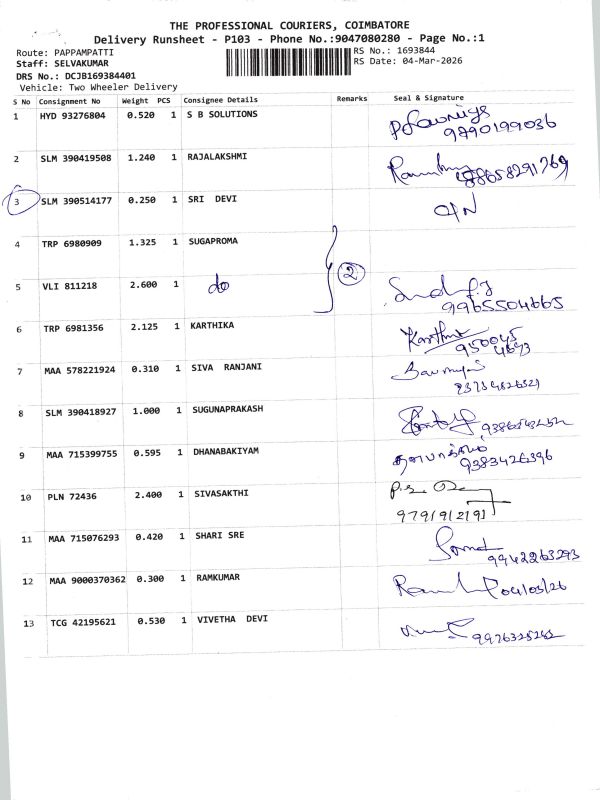 THE PROFESSIONAL COURIERS, COIMBATORE
Delivery Runsheet - P103 - Phone No.:9047080280 - Page No.:1
Route: PAPPAMPATTI
RS No.: 1693844
Staff: SELVAKUMAR
RS Date: 04-Mar-2026
DRS No.: DCJB169384401
Vehicle: Two Wheeler Delivery
S No Consignment No Weight PCS Consignee Details Remarks Seal & Signature
1 HYD 93276804 0.520 1 S B SOLUTIONS
9790199036
2 SLM 390419508 1.240 1 RAJALAKSHMI
3 SLM 390514177 0.250 1 SRI DEVI
4 TRP 6980909 1.325 1 SUGAPROMA
2
5 VLI 811218 2.600 1 do
9965504665
6 TRP 6981356 2.125 1 KARTHIKA
Karthika
950045
4693
7 MAA 578221924 0.310 1 SIVA RANJANI
8 SLM 390418927 1.000 1 SUGUNAPRAKASH
9 MAA 715399755 0.595 1 DHANABAKIYAM
தனபாக்கியம்
9383426396
10 PLN 72436 2.400 1 SIVASAKTHI
9791912191
11 MAA 715076293 0.420 1 SHARI SRE
9942263293
12 MAA 9000370362 0.300 1 RAMKUMAR
04/03/26
13 TCG 42195621 0.530 1 VIVETHA DEVI